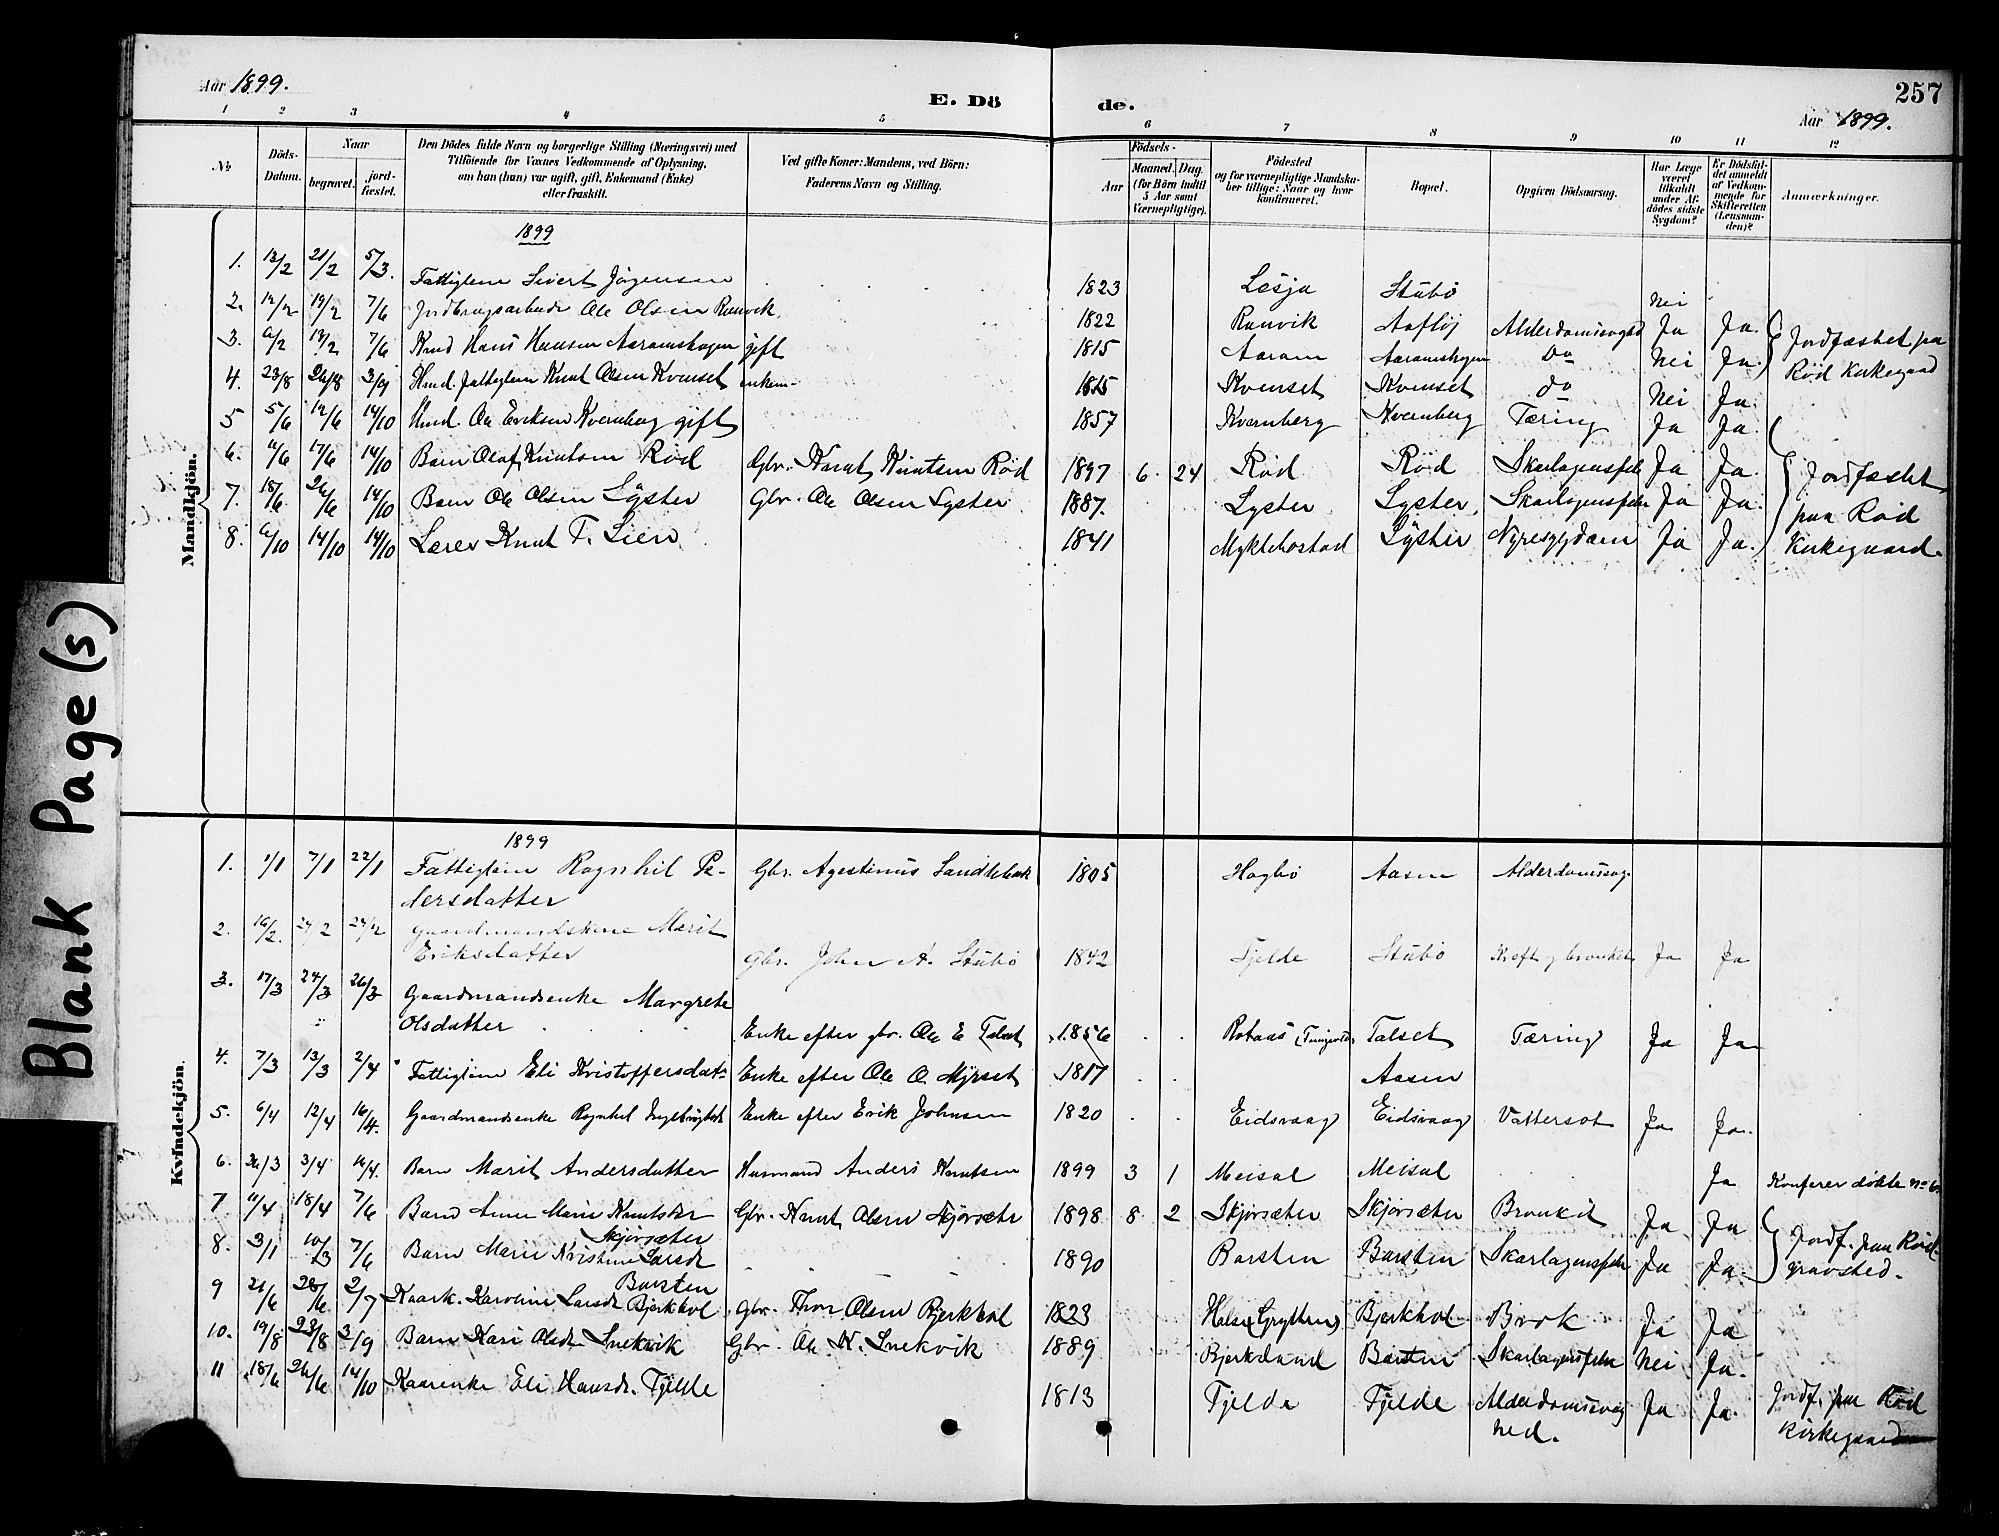 Aar 1899.
E. Dö
de.
257
Aar 1899.
1 2 3 4 5 6 7 8 9 10 11 12
No
Döds-Datum.
Naar
begravet.
jord-fæstet.
Den Dödes fulde Navn og borgerlige Stilling (Næringsvei) med
Tilföiende for Voxnes Vedkommende af Oplysning,
om han (hun) var ugift, gift, Enkemand (Enke)
eller fraskilt.
Ved gifte Koner: Mandens, ved Börn:
Faderens Navn og Stilling.
Födsels-
Aar
Maaned. Dag.
(for Börn indtil
5 Aar samt
Værnepligtige).
Födested
og for værnepligtige Mandska-
ber tillige: Naar og hvor
konfirmeret.
Bopæl.
Opgiven Dödsaarsag.
Har Læge
været
tilkaldt
under Af-
dödes sidste
Sygdom?
Er Dödsfal-
det anmeldt
af Vedkom-
mende for
Skifteretten
(Lensman-
den)?
Anmærkninger.
Mandkjön.
1899
1. 13/2 21/2 5/3. Fattiglem Sivert Jörgensen 1823 Lesja Stubö Nei
2. 12/2 19/2 7/6 Jordbrugsarbeider Ole Olsen Ranvik 1822 Ranvik Ja Ja.
3. 6/2 19/2 7/6 Kmd Hans Hansen Aaramshagen gift 1815 Aaram Aaramshagen Do Nei Ja.
Jordfæstet paa
Rød Kirkegaard
4. 23/8 26/8 3/9 Hmd. Fattiglem Knut Olsen Kvenset enkem. 1815 Kvenset Kvenset do Nei Ja.
5 5/6 12/6 14/10 Hmd. Ole Eriksen Kvernberg gift 1857 Kvernberg Kvernberg Tæring Ja Ja.
6. 11/6 17/6 14/10 Barn Olaf Knutsen Rød Gbr. Knut Knutsen Rød 1897 6. 24 Rød Rød Skarlagensfeber Ja Ja.
7. 18/6 26/6 14/10 Barn Ole Olsen Lyster Gbr. Ole Olsen Lyster 1887. Lyster Lyster Skarlagensfeber Ja Ja.
8. 6/10 14/10 14/10 Lærer Knut T. Lien 1841 Myklebostad Lyster Nyresygdom Ja Ja.
Jordfæstet
paa Rød
Kirkegaard.
Blank Page(s)
Kvindekjön.
1899
1. 1/1 7/1 22/1 Fattiglem Ragnhil Pe-
dersdatter Gbr. Agestinus Sandlebak 1805 Hagbö Aasen
2. 16/2. 24/2 Gaardmandskone Marit
Eriksdatter Gbr. John A. Stubö 1842 Tjelde Stubö Ja Ja
3. 17/3 24/3 26/3 Gaardmandsenke Margrete
Olsdatter Enke efter gbr. Ole E Talset 1856 Talset Tæring Ja Ja
4. 7/3 13/3 2/4 Fattiglem Eli Kristoffersdat- Enke efter Ole O. Myrset 1817 Aasen
5. 6/4 12/4 16/4. Gaardmandsenke Ragnhil Enke efter Erik Johnsen 1820 Eidsvaag Eidsvaag Vattersot Ja Ja.
6. 26/3 3/4 16/4. Barn Marit Andersdatter Husmand Anders Knutsen 1899 3 1 Meisal Meisal Ja
7 11/4 18/4 7/6 Barn Anne Marie Knutsdtr
Skjørsæter Gbr. Knut Olsen Skjørsæter 1898 8. 2 Skjørsæter Skjørsæter Bronkit Ja Ja
8. 3/1 10/3 7/6 Barn Marie Kristine Larsdt
Barsten 1890 Barsten Barsten Skarlagensfeber Ja Ja.
Jordf. paa Rød
gravsted.
9 21/6 28/6 2/7 Kaark. Karoline Larsdt Bjerkhol Gbr. Thor Olsen Bjerkhol 1823 (Grytten) Bjerkhol Brok Ja Ja
10. 19/8 23/8 3/9 Barn Kari Olsdt Snekvik Gbr. Ole K. Snekvik 1889 Barsten Skarlagensfeber Nei Ja.
11 18/6 26/6 14/10 Kaarenke Eli Hansdt. Tjelde 1813 Tjelde Tjelde Alderdomssvag
hed. Ja Ja.
Jordf. paa Rød
Kirkegaard